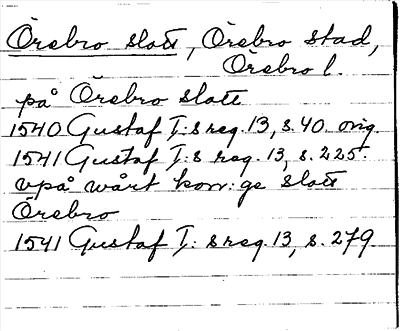 Örebro slott, Örebro stad,
Örebro l.
på Örebro slott
1540 Gustaf I:s reg. 13, s. 40. orig.
1541 Gustaf I:s reg. 13, s. 225.
vpå wårt kon:ge slott
Örebro
1541 Gustaf I:s reg. 13, s. 279